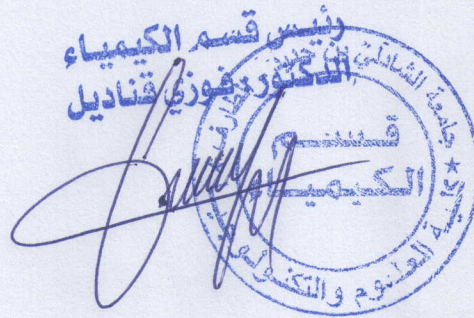 رئيس قسم الكيمياء
الدكتور: فوزي قناديل
جامعة الشاذلي
قسم
الكيمياء
كلية العلوم والتكنولوجيا